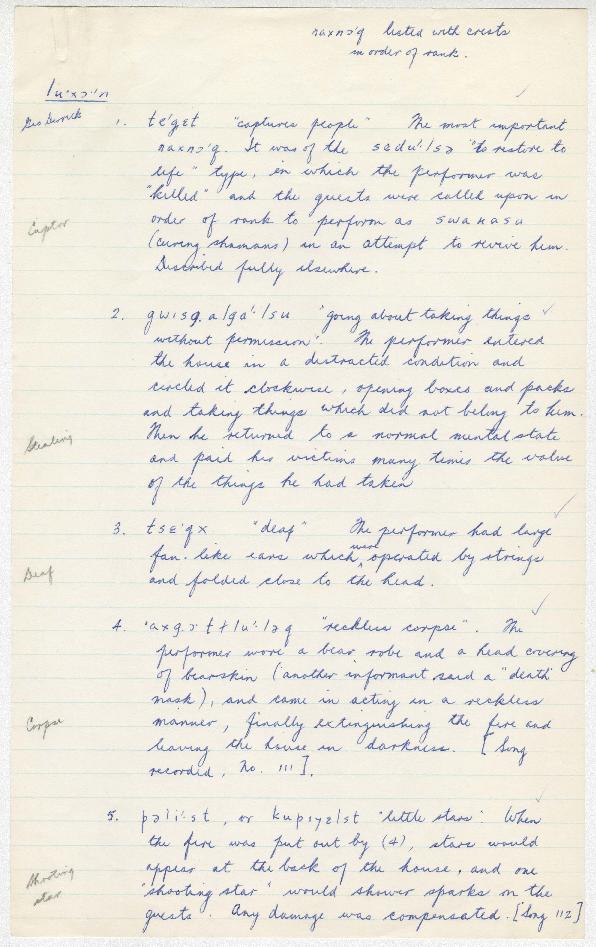 naxnɔ'q listed with crests
in order of rank.
lu·xɔ·'n
Geo Derrick
1. te'gɛt "captures people" The most important
naxnɔ'q. It was of the sɛdu'·lsə "to restore to
life" type, in which the performer was
"killed" and the guests were called upon in
order of rank to perform as swanasu
Captor
(curing shamans) in an attempt to revive him.
Described fully elsewhere.
2. gwisg.alga'·lsu "going about taking things
without permission". The performer entered
the house in a distracted condition and
circled it clockwise, opening boxes and packs
and taking things which did not belong to him.
Then he returned to a normal mental state
Stealing
and paid his victims many times the value
of the things he had taken
3. tsɛ'qx "deaf" The performer had large
fan-like ears which were operated by strings
Deaf
and folded close to the head.
4. 'axg.ɔt łlu'·ləq "reckless corpse". The
performer wore a bear robe and a head covering
of bearskin (another informant said a "death"
mask), and came in acting in a reckless
Corpse
manner, finally extinguishing the fire and
leaving the house in darkness. [Song
recorded, No. 111].
5. pəli'·st, or kupɪyɛlst "little stars". When
the fire was put out by (4), stars would
appear at the back of the house, and one
Shooting
star
"shooting star" would shower sparks on the
guests. Any damage was compensated. [Song 112]